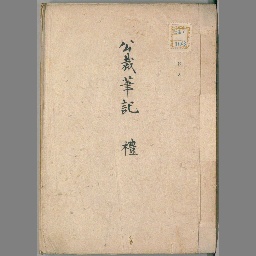 公義筆記 禮